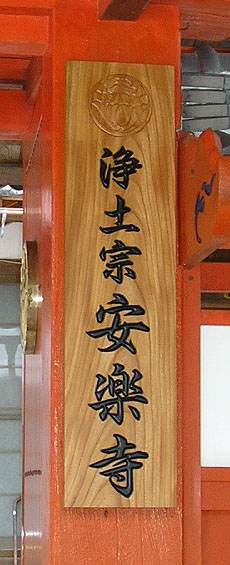 浄土宗安楽寺